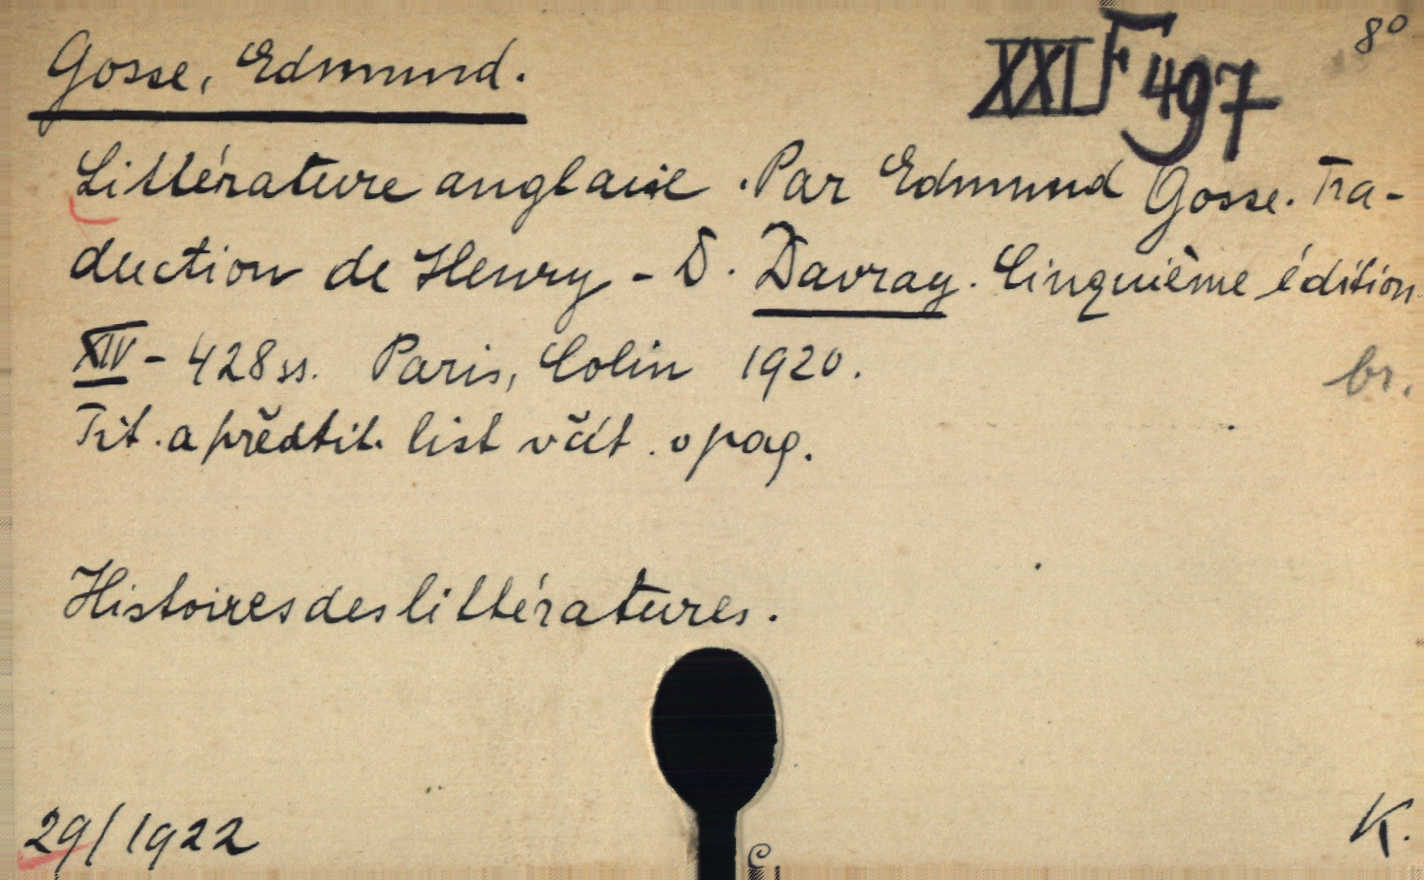 Gosse, Edmund.
XXI F 497
8°
Littérature anglaise. Par Edmund Gosse. Tra-
duction de Henry-D. Davray. Cinquième édition
XIV - 428 ss. Paris, Colin 1920.
br.
Tit. a předtit. list včít. v pag.
Histoires des littératures.
29/1922
K.